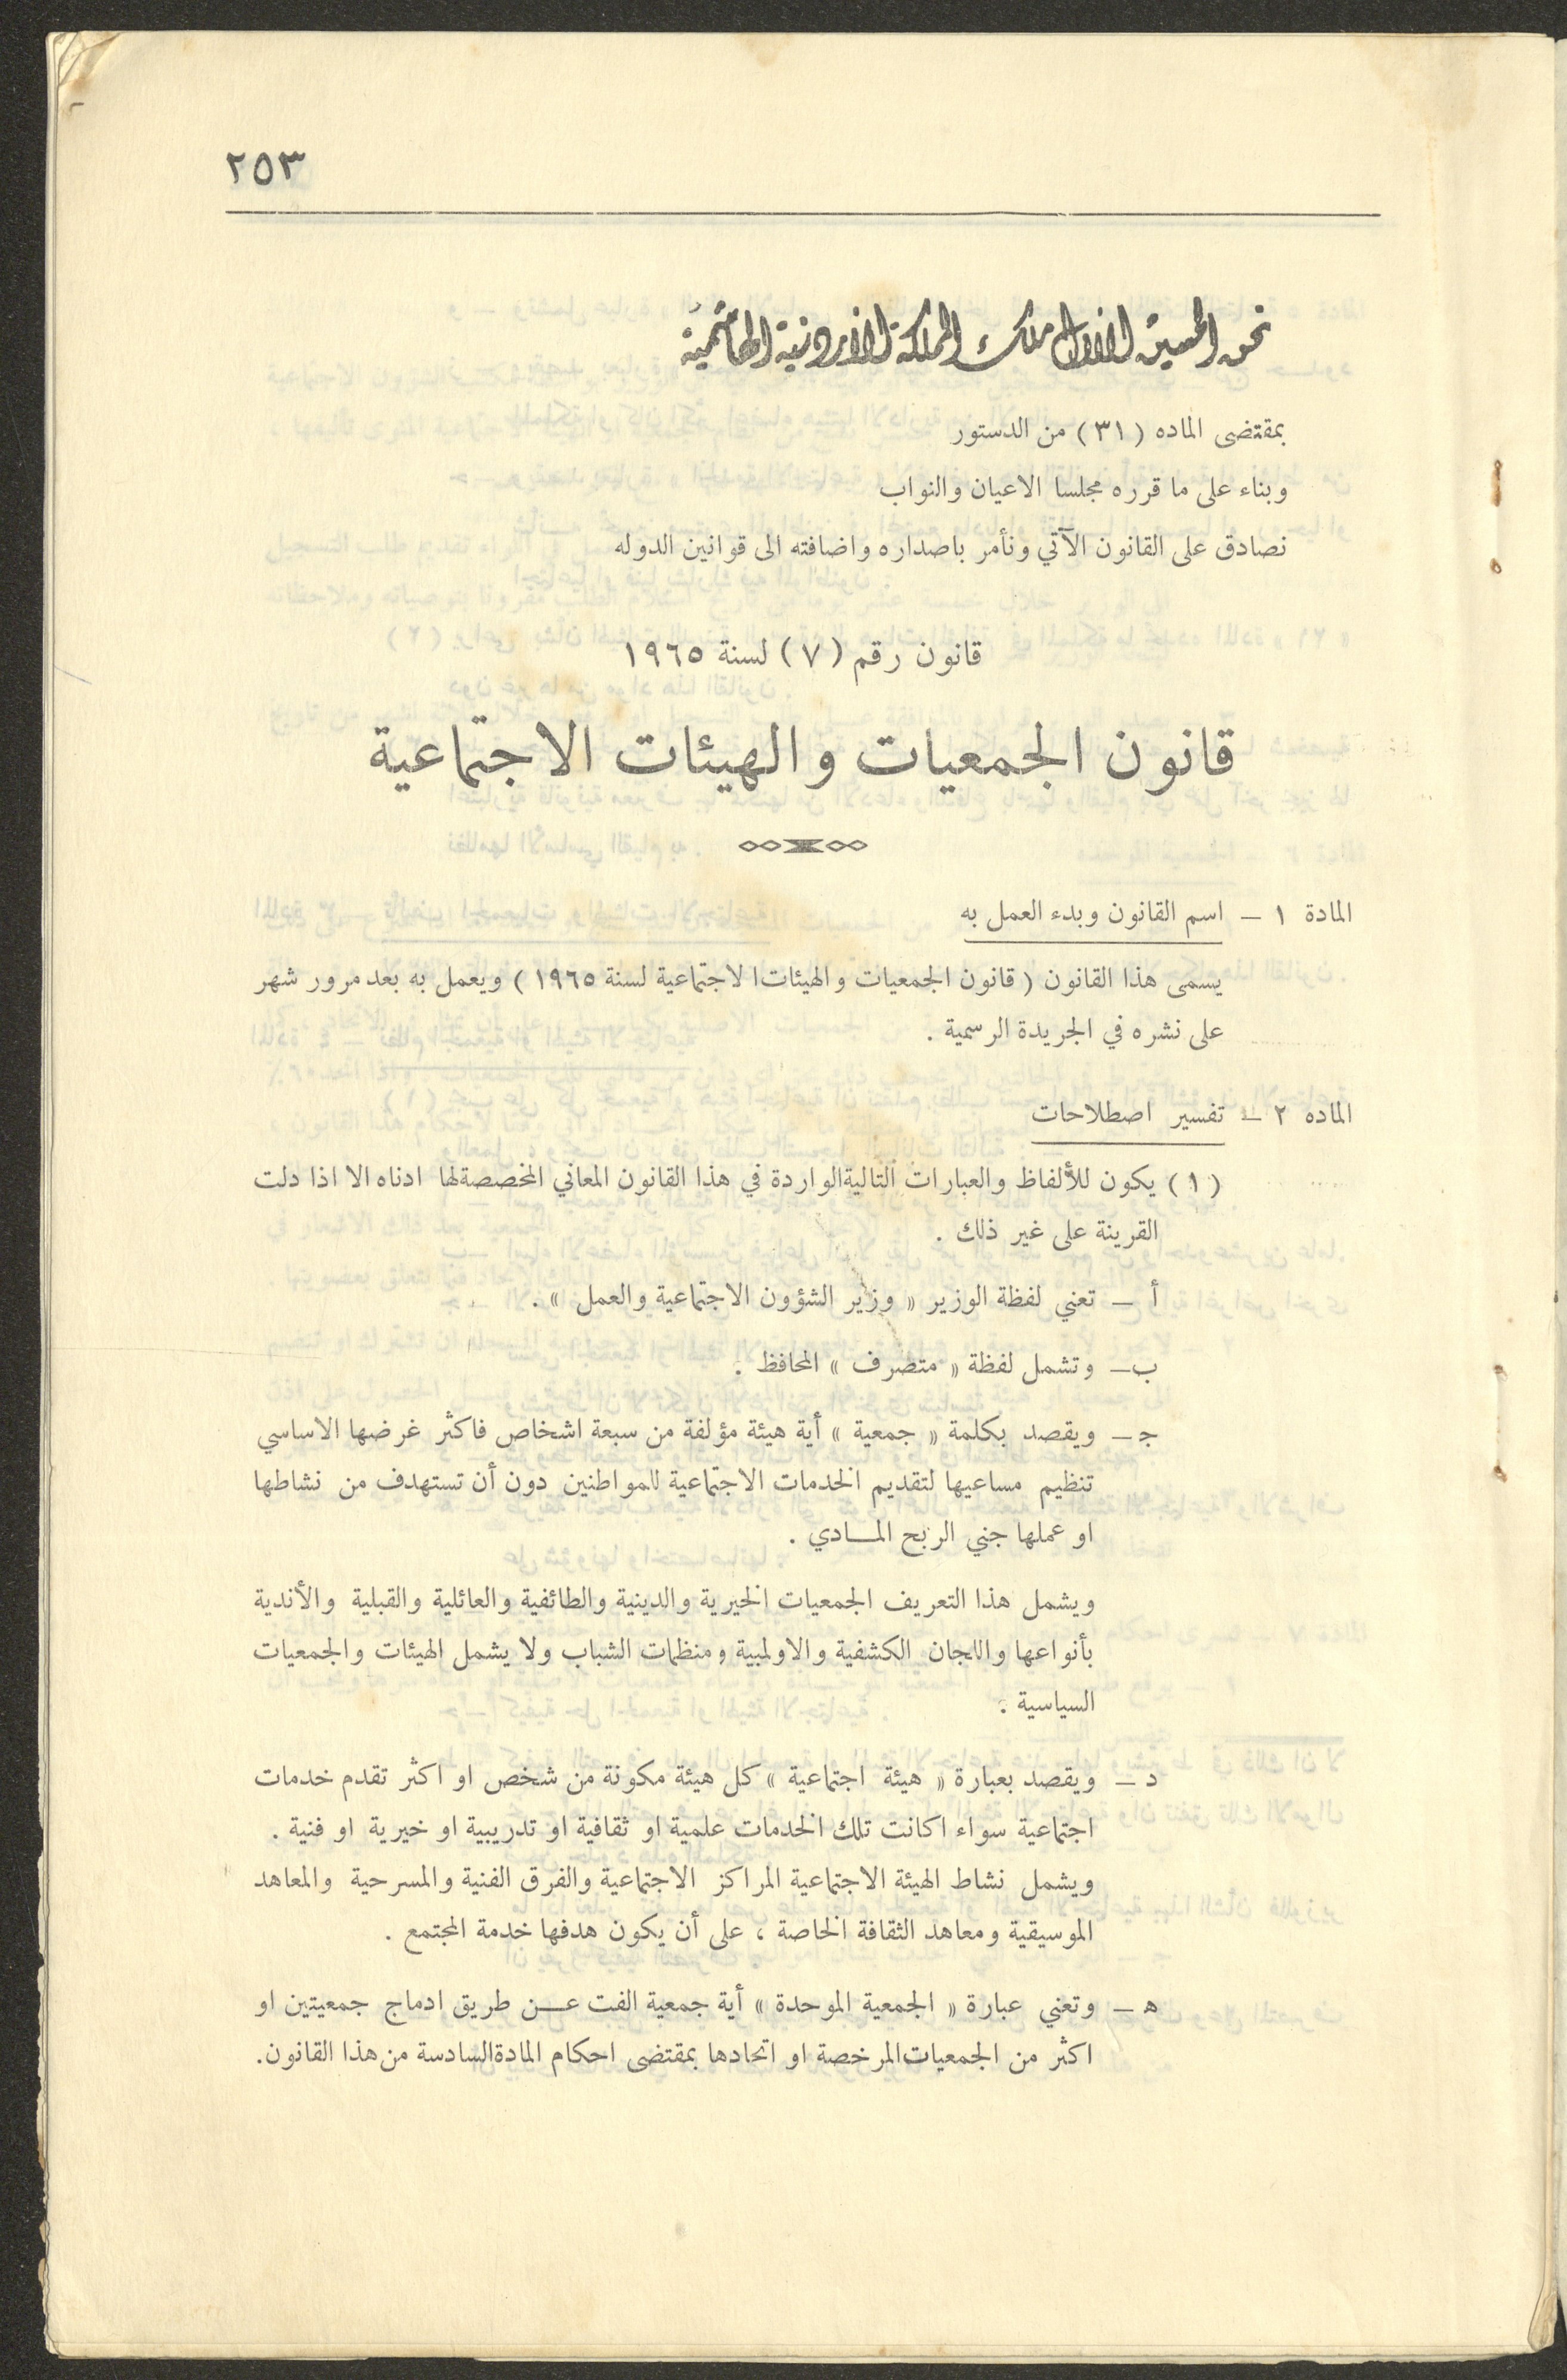 ٢٥٣
نحن الحسين الاول ملك المملكة الاردنية الهاشمية
بمقتضى الماده (٣١) من الدستور
وبناء على ما قرره مجلسا الاعيان والنواب
نصادق على القانون الآتي ونأمر باصداره واضافته الى قوانين الدوله
قانون رقم (٧) لسنة ١٩٦٥
قانون الجمعيات والهيئات الاجتماعية
المادة ١ – اسم القانون وبدء العمل به
يسمى هذا القانون (قانون الجمعيات والهيئات الاجتماعية لسنة ١٩٦٥) ويعمل به بعد مرور شهر
على نشره في الجريدة الرسمية .
الماده ٢ – تفسير اصطلاحات
(١) يكون للألفاظ والعبارات التالية الواردة في هذا القانون المعاني المخصصة لها ادناه الا اذا دلت
القرينة على غير ذلك .
أ – تعني لفظة الوزير « وزير الشؤون الاجتماعية والعمل » .
ب – وتشمل لفظة « متصرف » المحافظ .
ج – ويقصد بكلمة « جمعية » أية هيئة مؤلفة من سبعة اشخاص فاكثر غرضها الاساسي
تنظيم مساعيها لتقديم الخدمات الاجتماعية للمواطنين دون أن تستهدف من نشاطها
او عملها جني الربح المـادي .
ويشمل هذا التعريف الجمعيات الخيرية والدينية والطائفية والعائلية والقبلية والأندية
بأنواعها واللجان الكشفية والاولمبية ومنظمات الشباب ولا يشمل الهيئات والجمعيات
السياسية .
د – ويقصد بعبارة « هيئة اجتماعية » كل هيئة مكونة من شخص او اكثر تقدم خدمات
اجتماعية سواء اكانت تلك الخدمات علمية او ثقافية او تدريبية او خيرية او فنية .
ويشمل نشاط الهيئة الاجتماعية المراكز الاجتماعية والفرق الفنية والمسرحية والمعاهد
الموسيقية ومعاهد الثقافة الخاصة ، على أن يكون هدفها خدمة المجتمع .
ه – وتعني عبارة « الجمعية الموحدة » أية جمعية الفت عـن طريق ادماج جمعيتين او
اكثر من الجمعيات المرخصة او اتحادها بمقتضى احكام المادة السادسة من هذا القانون.